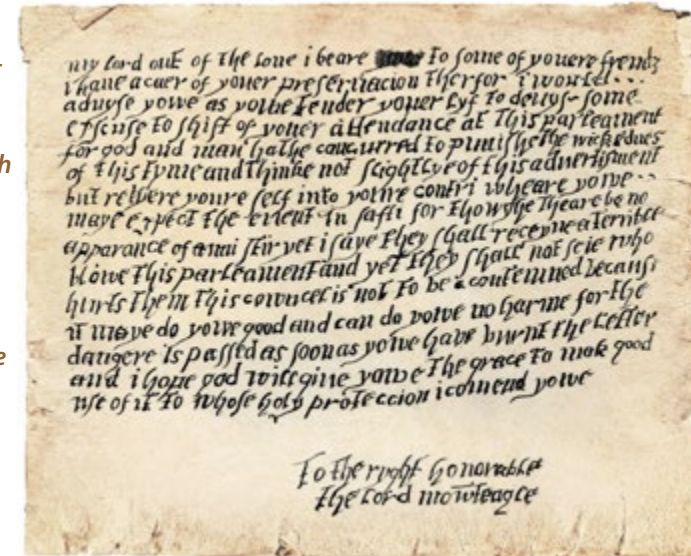 my lord out of the loue i beare to some of youere frendz
i haue a caer of youer preseruacion therfor i would...
aduyse yowe as yowe tender youer lyf to deuys some
exscuse to shift of youer attendance at this parleament
for god and man hathe concurred to punishe the wickednes
of this tyme and thinke not slightlye of this advertisment
but retyere youre self into youre contri wheare yowe..
maye expect the event in safti for thowghe theare be no
apparance of anni stir yet i saye they shall receyue a terrible
blowe this parleament and yet they shall not seie who
hurts them this councel is not to be contemned because
it maye do yowe good and can do yowe no harme for the
dangere is passed as soon as yowe have burnt the letter
and i hope god will giue yowe the grace to mak good
use of it to whose holy proteccion i comend yowe
To the ryght honorable
the lord mowteagle
h
e